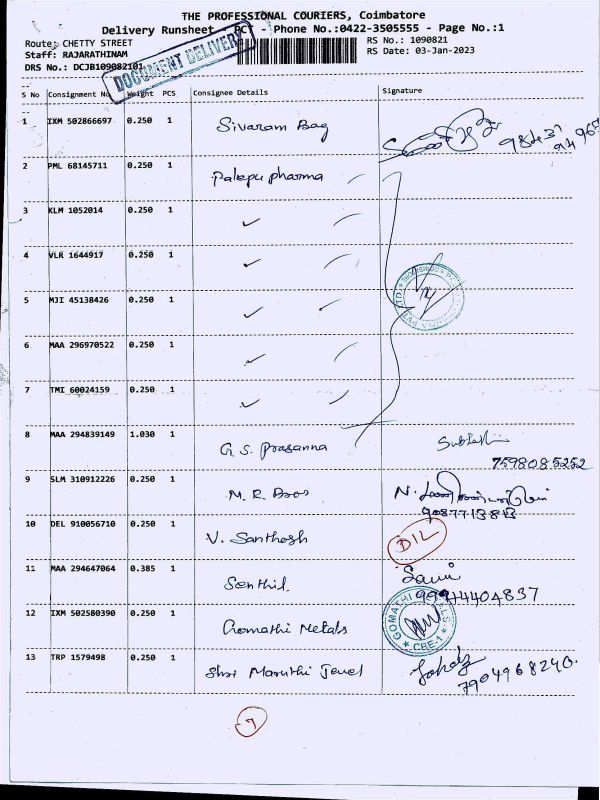 THE PROFESSIONAL COURIERS, Coimbatore
Delivery Runsheet - PCT - Phone No.:0422-3505555 - Page No.:1
Route: CHETTY STREET
RS No.: 1090821
Staff: RAJARATHINAM
RS Date: 03-Jan-2023
DRS No.: DCJB109082101
DOCUMENT DELIVERY
S No Consignment No Weight PCS Consignee Details Signature
1 IXM 502866697 0.250 1 Sivaram Bag
2 PML 68145711 0.250 1 Palepu pharma
3 KLM 1052014 0.250 1 ✓
4 VLR 1644917 0.250 1 ✓
5 MJI 45138426 0.250 1 ✓
6 MAA 296970522 0.250 1 ✓
7 TMI 60024159 0.250 1 ✓
8 MAA 294839149 1.030 1 G. S. Prasanna
7598085252
9 SLM 310912226 0.250 1 M. R. Bros N.
10 DEL 910056710 0.250 1 V. Santhosh D/L
11 MAA 294647064 0.385 1 Senthil.
12 IXM 502580390 0.250 1 Gomathi Metals GOMATHI CBE-1
13 TRP 1579498 0.250 1 Shri Maruthi Jewel
7904968240.
7